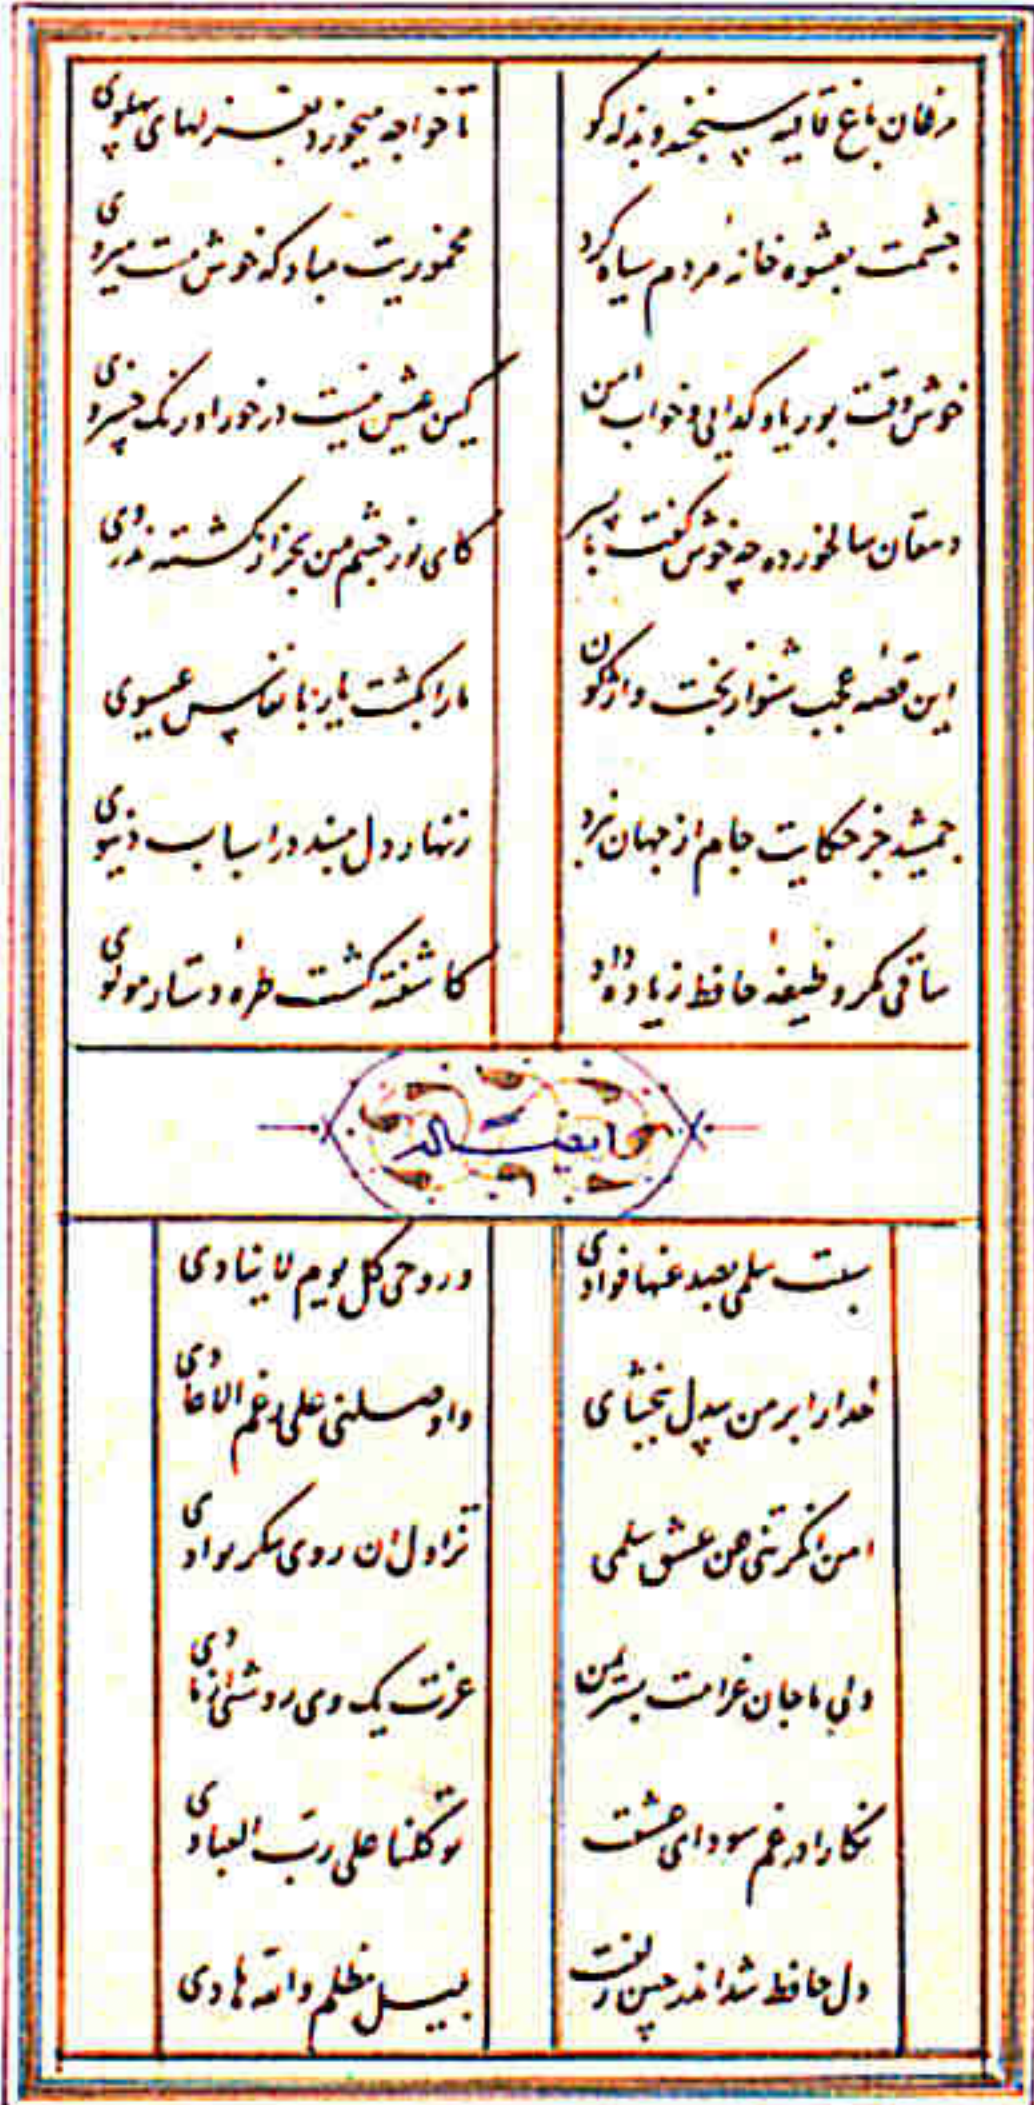 مرغان باغ قافیه سنجند و بذله گو
تا خواجه میخورد بغزلهای پهلوی
چشمت بعشوه خانهٔ مردم سیاه کرد
مخموریت مباد که خوش مست میروی
خوش وقت بوریا و گدایی و خواب امن
کین عیش نیست در خور اورنگ خسروی
دهقان سالخورده چه خوش گفت با پسر
کای نور چشم من بجز از کشته ندروی
این قصهٔ عجب شنو از بخت واژگون
ما را بکشت یار بانفاس عیسوی
جمشید جز حکایت جام از جهان نبرد
زنهار دل مبند در اسباب دنیوی
ساقی مگر وظیفهٔ حافظ زیاده داد
کاشفته گشت طرهٔ دستار مولوی
ایضاً له
سبت سلمی بصدغیها فوادی
و روحی کل یوم لا ینادی
خدا را بر من بیدل ببخشای
و اوصلنی علی رغم الاعادی
امن انکرتنی عن عشق سلمی
تزاول ان روی نکو بوادی
غرت یک وی روشتی از
نگارا در غم سودای عشقت
توکلنا علی رب العباد
دل حافظ شد اندر چین زلفت
بلیل مظلم والله هادی